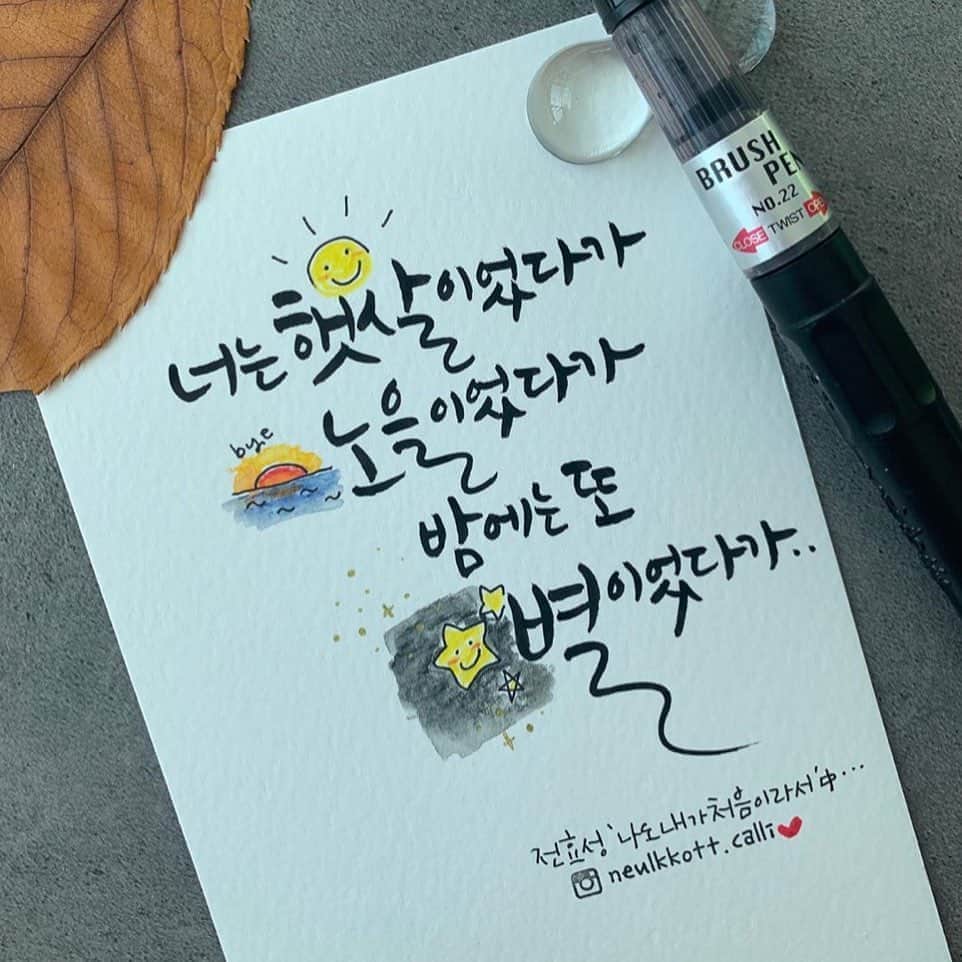 BRUSH
PEN
NO.22
CLOSE TWIST OPE
너는 햇살이었다가
bye
노을이었다가
밤에는 또
별이었다가..
전효성 '나도 내가 처음이라서' 中...
neulkkott.calli